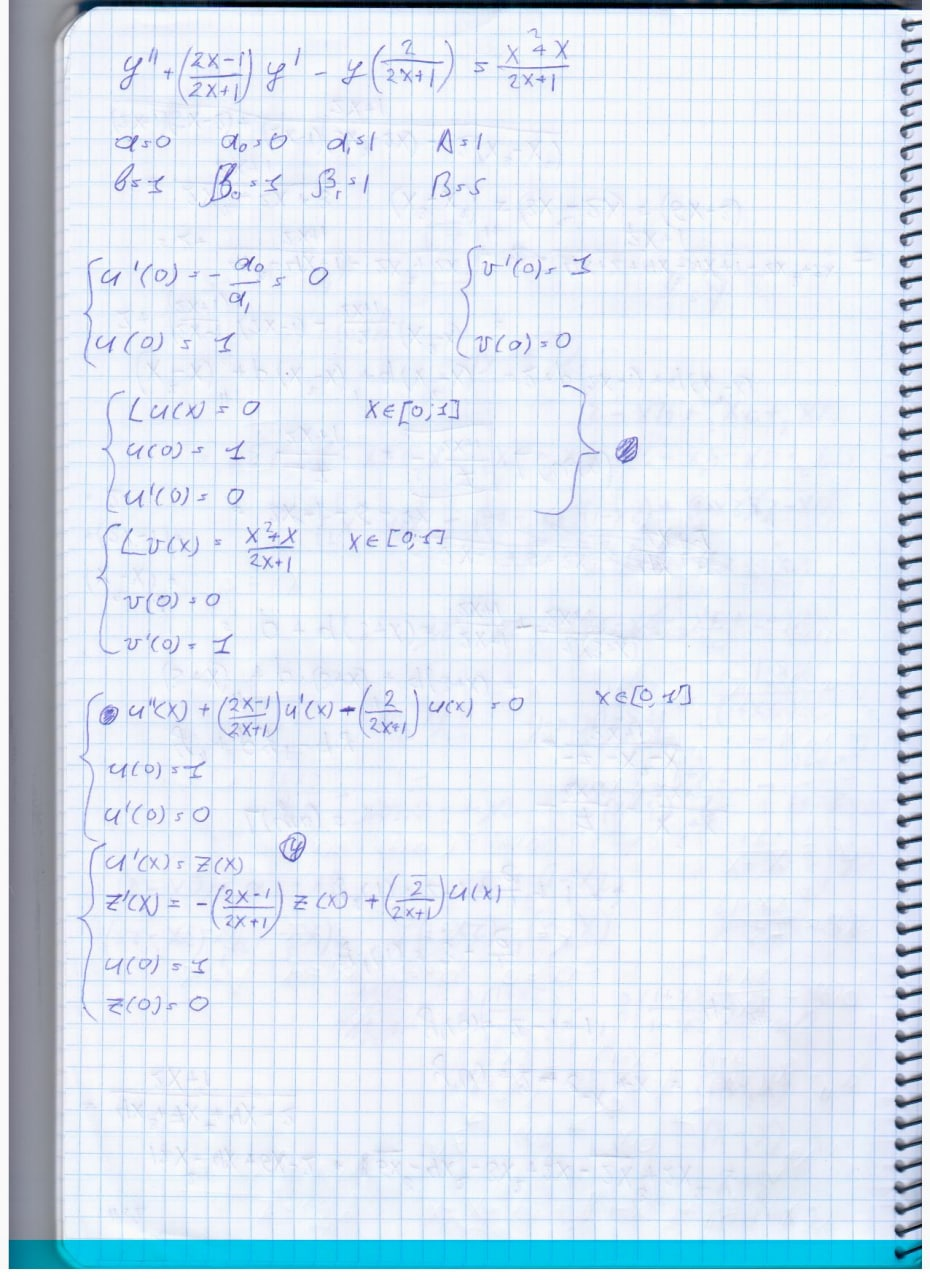 y'' + ((2x-1)/(2x+1)) y' - y (2/(2x+1)) = (x²+x)/(2x+1)
a=0 α₀=0 α₁=1 A=1
b=1 β₀=1 β₁=1 B=5
{ u'(0) = -α₀/α₁ = 0 { v'(0) = 1
u(0) = 1 v(0) = 0
{ Lu(x) = 0 x∈[0;1] }
u(0) = 1
u'(0) = 0
{ Lv(x) = (x²+x)/(2x+1) x∈[0;1]
v(0) = 0
v'(0) = 1
{ u''(x) + ((2x-1)/(2x+1)) u'(x) - (2/(2x+1)) u(x) = 0 x∈[0,1]
u(0) = 1
u'(0) = 0
{ u'(x) = z(x)
z'(x) = -((2x-1)/(2x+1)) z(x) + (2/(2x+1)) u(x)
u(0) = 1
z(0) = 0